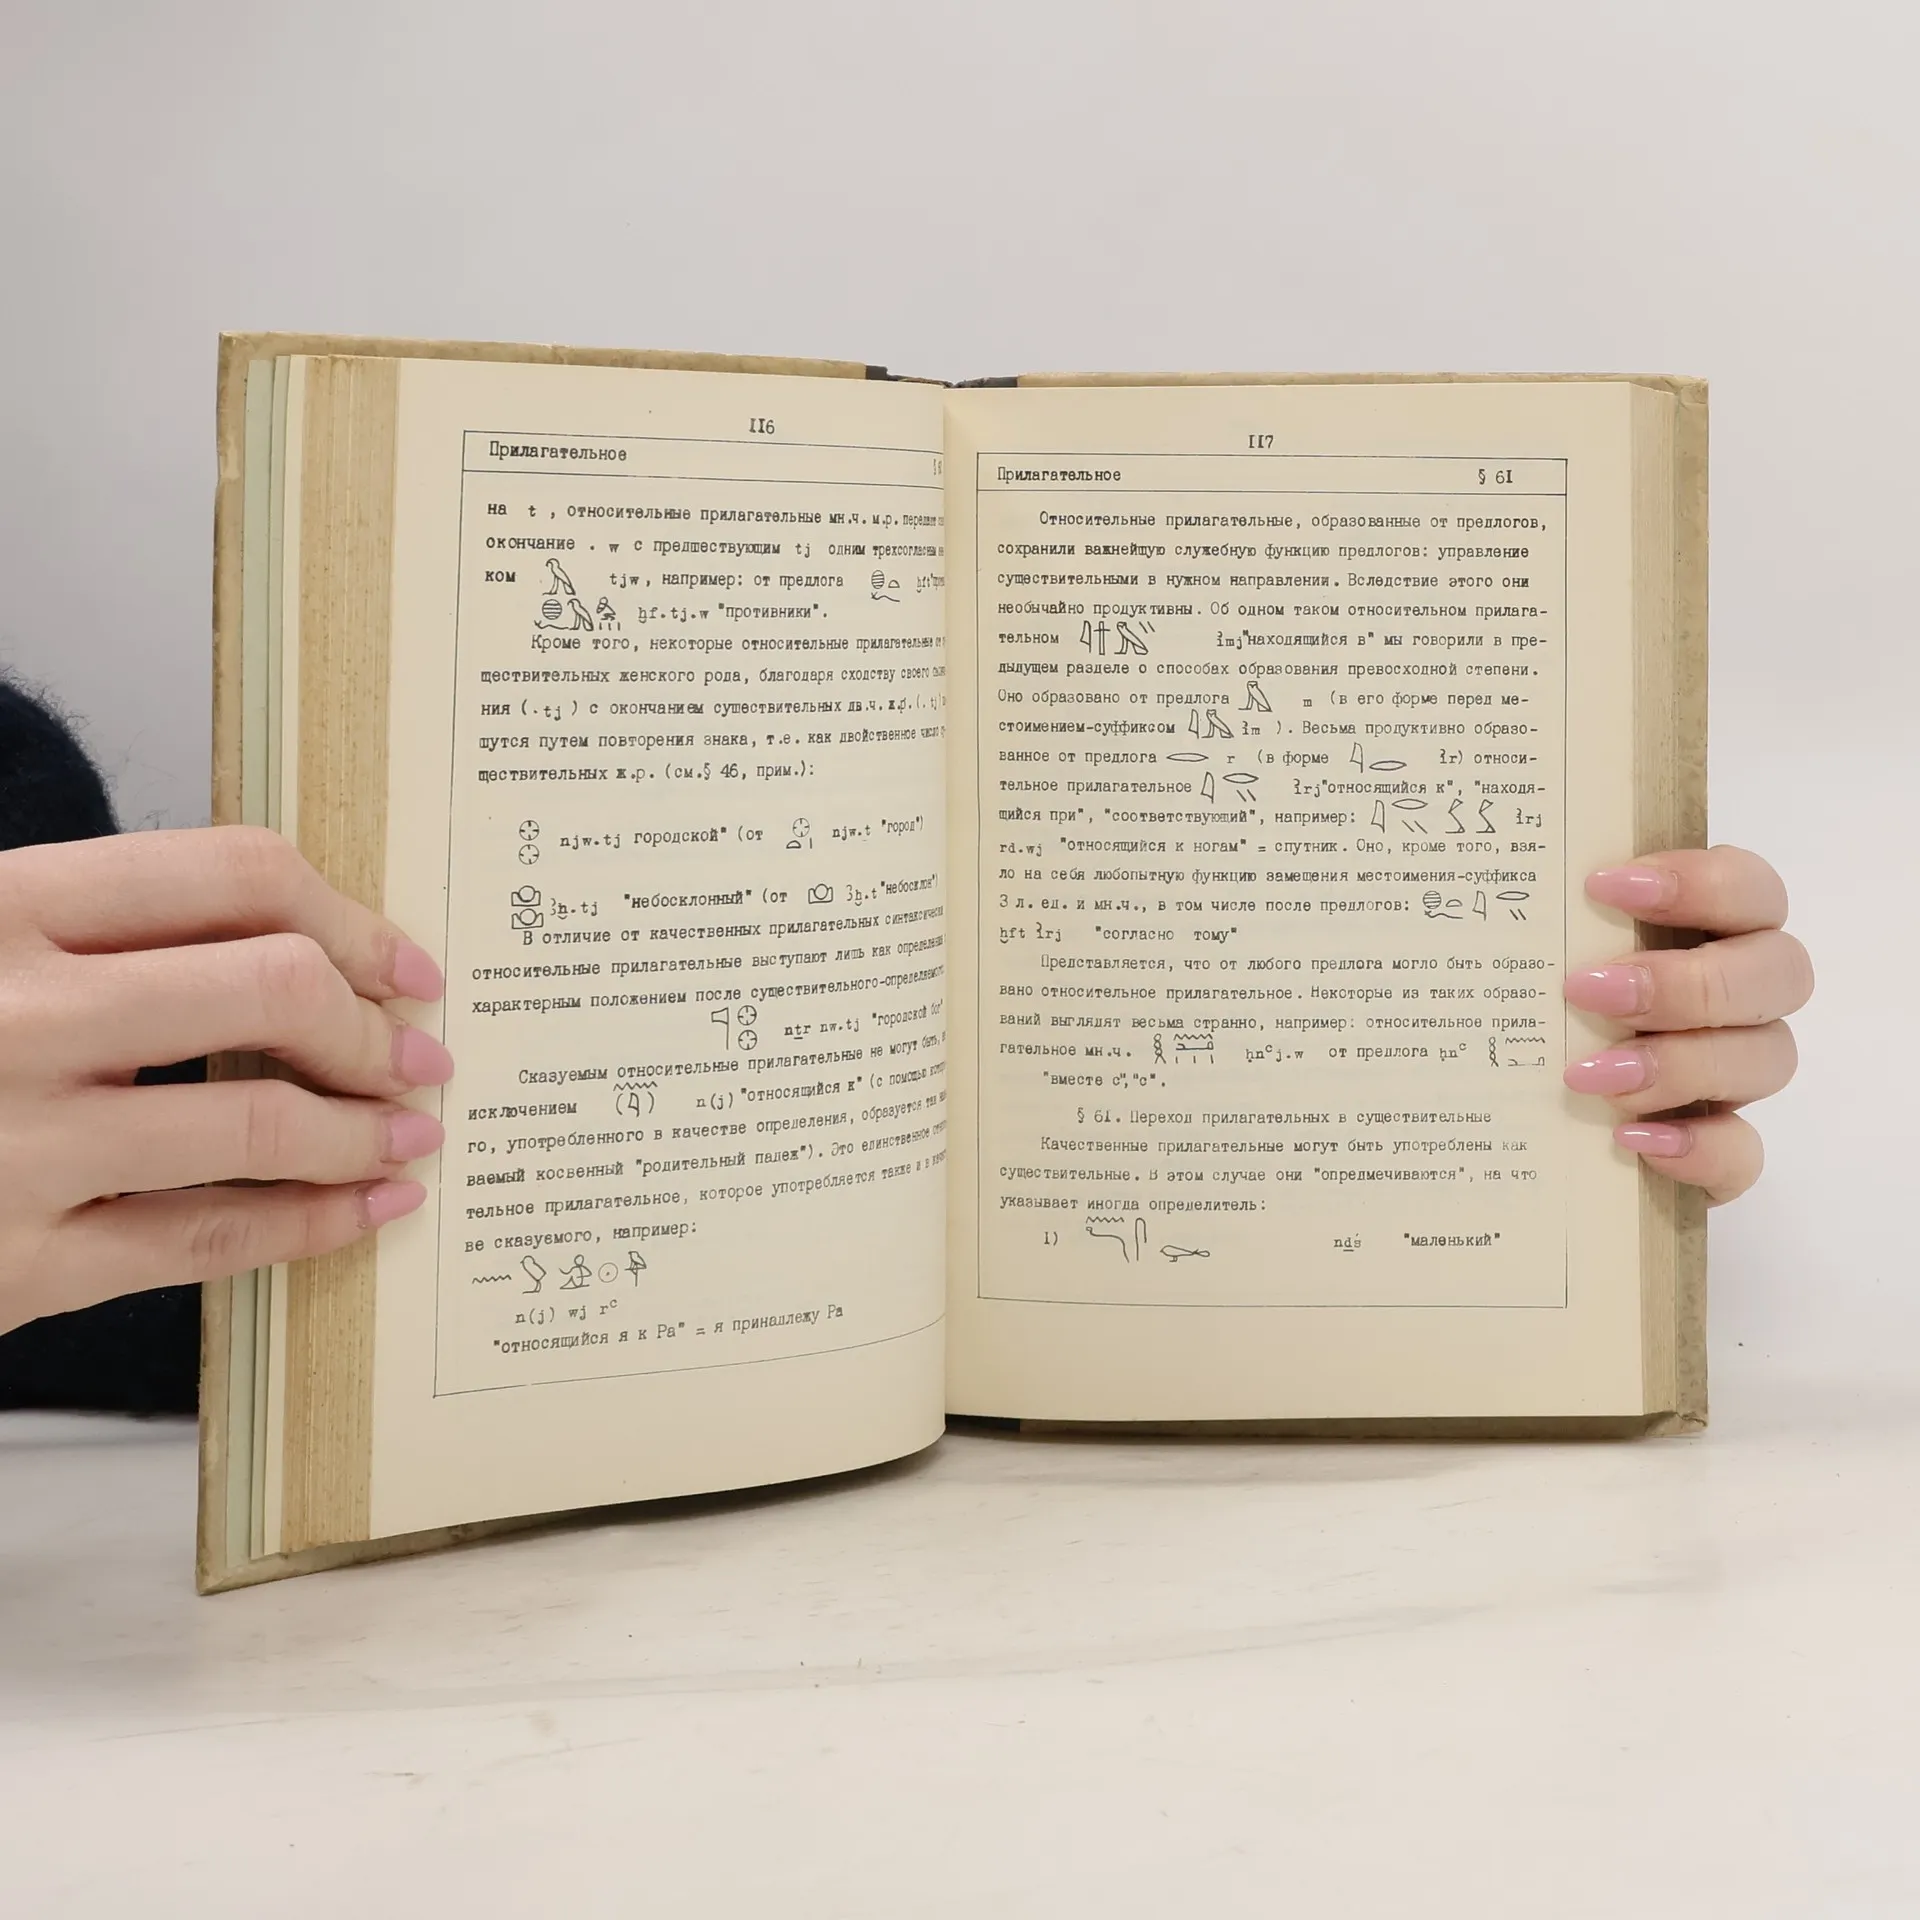 II6
Прилагательное
на t , относительные прилагательные мн.ч. м.р.
окончание . w с предшествующим tj одним трехсогласным
ком tjw, например: от предлога ḫft
ḫf.tj.w "противники".
Кроме того, некоторые относительные прилагательные от
ществительных женского рода, благодаря сходству своего
ния (.tj ) с окончанием существительных дв.ч. ж.р. (. tj)
шутся путем повторения знака, т.е. как двойственное число
ществительных ж.р. (см.§ 46, прим.):
njw.tj городской" (от njw.t "город")
ꜣḫ.tj "небосклонный" (от ꜣḫ.t "небосклон")
В отличие от качественных прилагательных синтаксически
относительные прилагательные выступают лишь как определения
характерным положением после существительного-определяемого.
nṯr nw.tj "городской бог"
Сказуемым относительные прилагательные не могут быть,
исключением ( ) n(j) "относящийся к" (с помощью
го, употребленного в качестве определения, образуется так
ваемый косвенный "родительный падеж"). Это единственное
тельное прилагательное, которое употребляется также и в
ве сказуемого, например:
n(j) wj rᶜ
"относящийся я к Ра" = я принадлежу Ра
II7
Прилагательное § 6I
Относительные прилагательные, образованные от предлогов,
сохранили важнейшую служебную функцию предлогов: управление
существительными в нужном направлении. Вследствие этого они
необычайно продуктивны. Об одном таком относительном прилага-
тельном ỉmj"находящийся в" мы говорили в пре-
дыдущем разделе о способах образования превосходной степени.
Оно образовано от предлога m (в его форме перед ме-
стоимением-суффиксом ỉm ). Весьма продуктивно образо-
ванное от предлога r (в форме ỉr) относи-
тельное прилагательное ỉrj"относящийся к", "находя-
щийся при", "соответствующий", например: ỉrj
rd.wj "относящийся к ногам" = спутник. Оно, кроме того, взя-
ло на себя любопытную функцию замещения местоимения-суффикса
3 л. ед. и мн.ч., в том числе после предлогов:
ḫft ỉrj "согласно тому"
Представляется, что от любого предлога могло быть образо-
вано относительное прилагательное. Некоторые из таких образо-
ваний выглядят весьма странно, например: относительное прила-
гательное мн.ч. ḥnᶜj.w от предлога ḥnᶜ
"вместе с","с".
§ 6I. Переход прилагательных в существительные
Качественные прилагательные могут быть употреблены как
существительные. В этом случае они "опредмечиваются", на что
указывает иногда определитель:
I) nḏś "маленький"